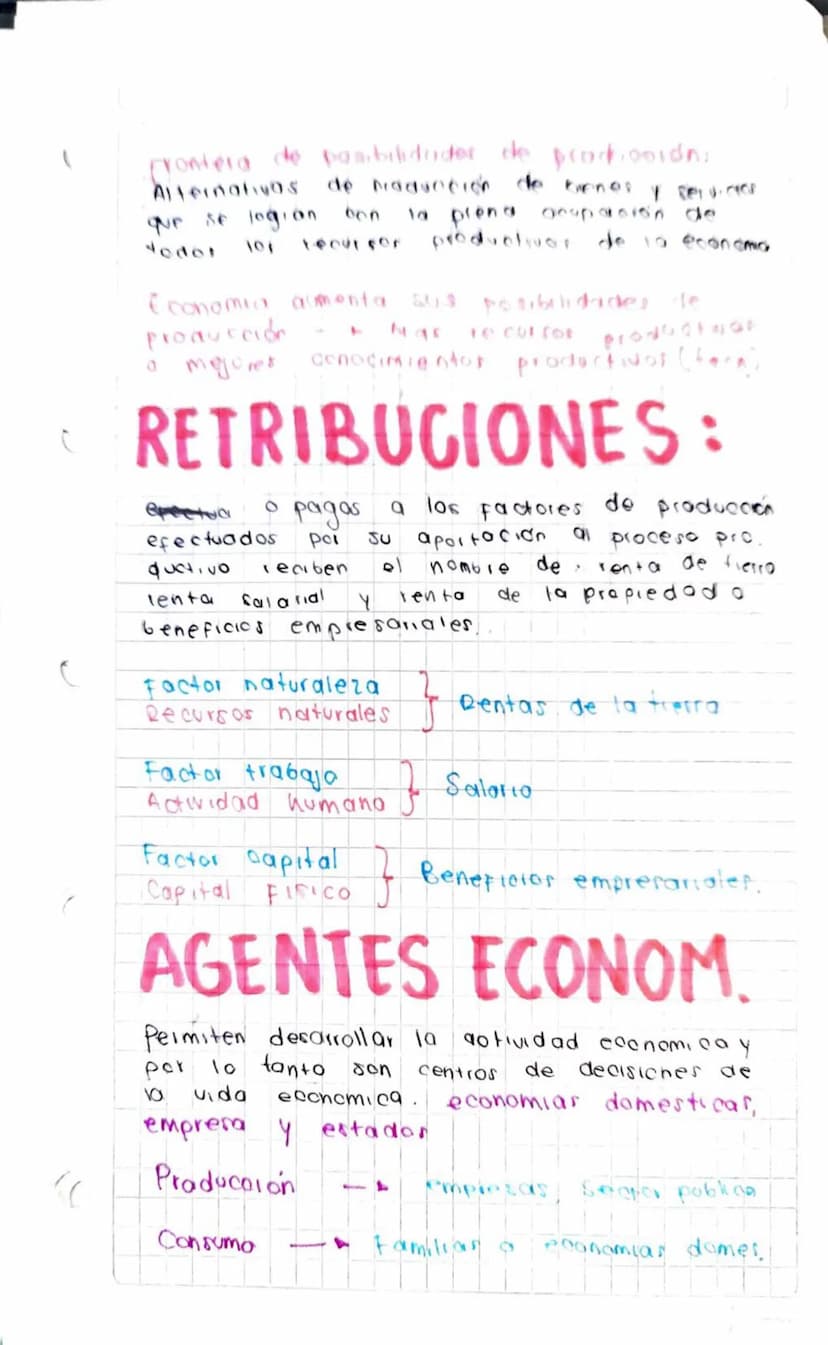 Frontera de posibilidades de producción:
Alternativas de producción de bienes y servicios
que se logran con la plena ocupación de
todos los recursos productivos de la economa
Economia aumenta sus posibilidades de
producción → Mas recursos productivos
o mejores conocimientos productivos (tecn)
RETRIBUCIONES:
o pagos a los factores de producción
efectuados por su aportación al proceso pro.
ductivo reciben el nombre de: renta de tierra
renta salarial y renta de la propiedad o
beneficios empresariales.
Factor naturaleza } Rentas de la tierra
Recursos naturales
Factor trabajo } Salario
Actividad humana
Factor capital } Beneficios empresariales.
Capital Fisico
AGENTES ECONOM.
Permiten desarrollar la actividad economica y
por lo tanto son centros de decisiones de
la vida economica. economias domesticas,
empresa y estados
Producción → empresas, Sector publico
Consumo → Familias o economias domes.